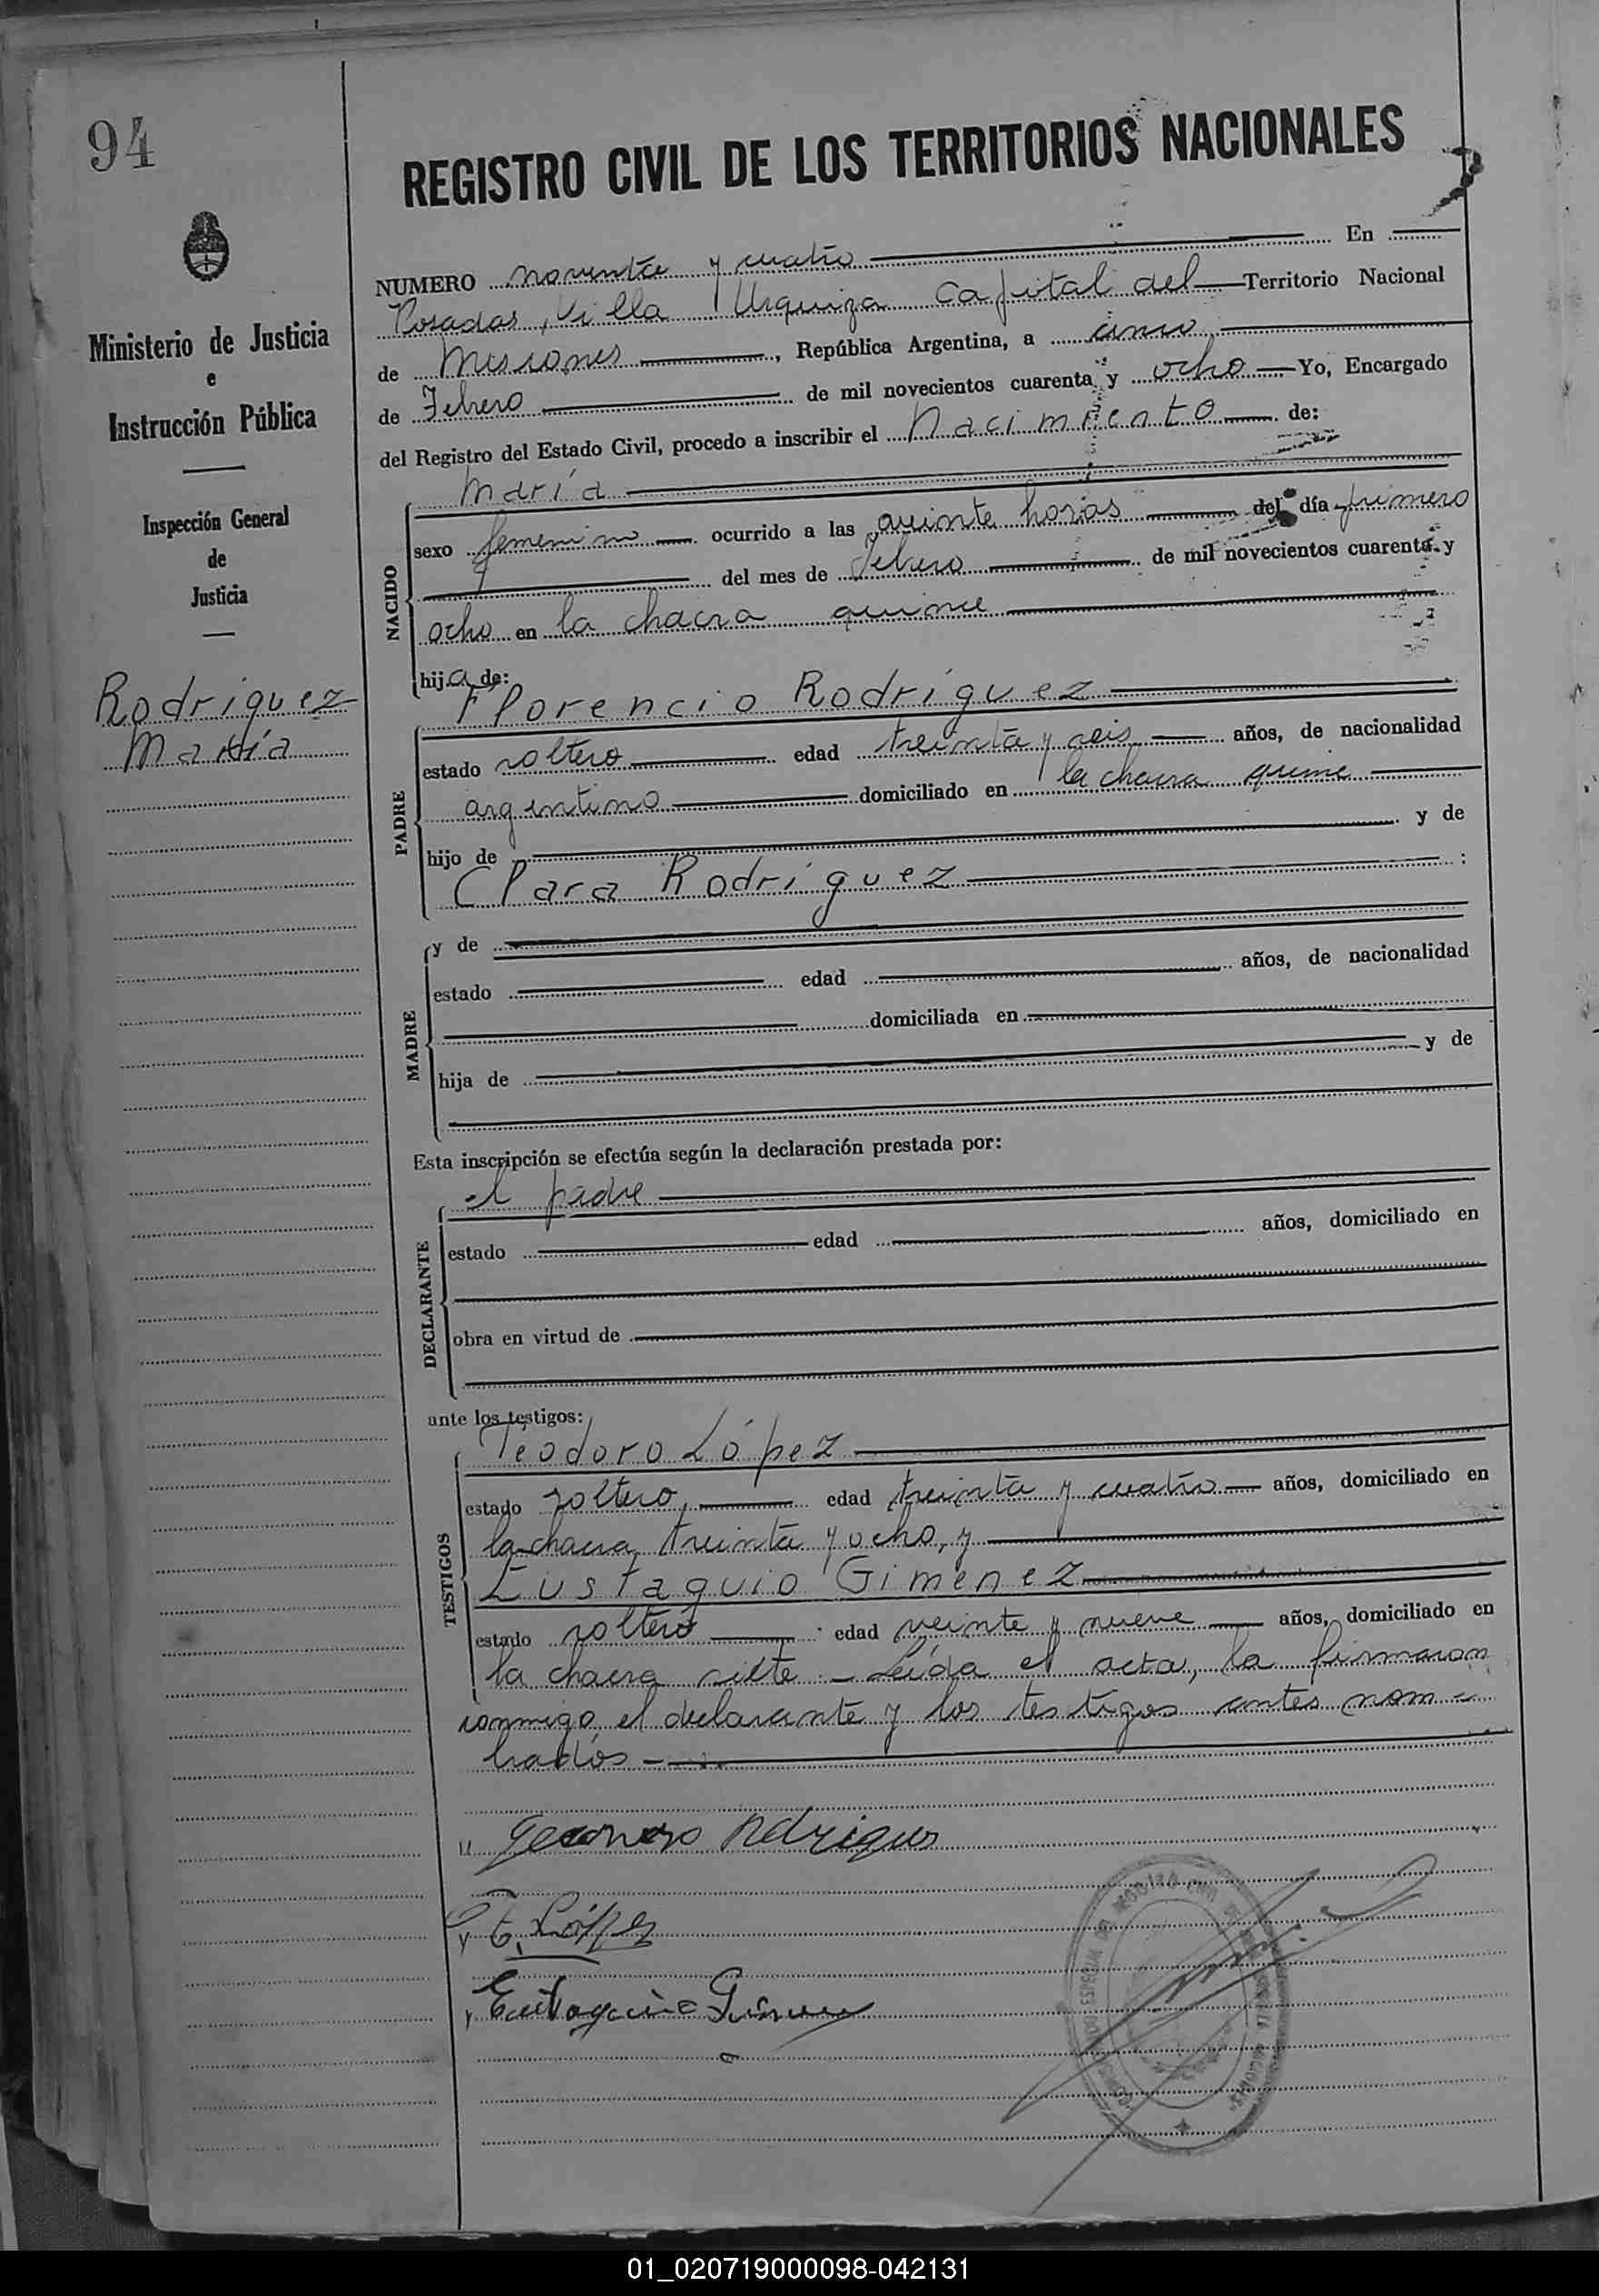 94
REGISTRO CIVIL DE LOS TERRITORIOS NACIONALES
Ministerio de Justicia
e
Instrucción Pública
Inspección General
de
Justicia
Rodriguez
María
NUMERO noventa y cuatro En
Posadas, Villa Urquiza Capital del Territorio Nacional
de Misiones, República Argentina, a cinco
de Febrero de mil novecientos cuarenta y ocho Yo, Encargado
del Registro del Estado Civil, procedo a inscribir el Nacimiento de:
María
NACIDO
sexo femenino ocurrido a las veinte horas del día primero
del mes de Febrero de mil novecientos cuarenta y
ocho en la chacra quince
hija de:
Florencio Rodríguez
PADRE
estado soltero edad treinta y seis años, de nacionalidad
argentino domiciliado en la chacra quince
hijo de y de
Clara Rodríguez :
MADRE
y de
estado edad años, de nacionalidad
domiciliada en
hija de y de
Esta inscripción se efectúa según la declaración prestada por:
el padre
DECLARANTE
estado edad años, domiciliado en
obra en virtud de
ante los testigos:
Teodoro López
TESTIGOS
estado soltero, edad treinta y cuatro años, domiciliado en
la chacra treinta y ocho, y
Eustaquio Gimenez
estado soltero edad veinte y nueve años, domiciliado en
la chacra siete - Leída el acta, la firmaron
conmigo el declarante y los testigos antes nom-
brados -
T. López
01_020719000098-042131